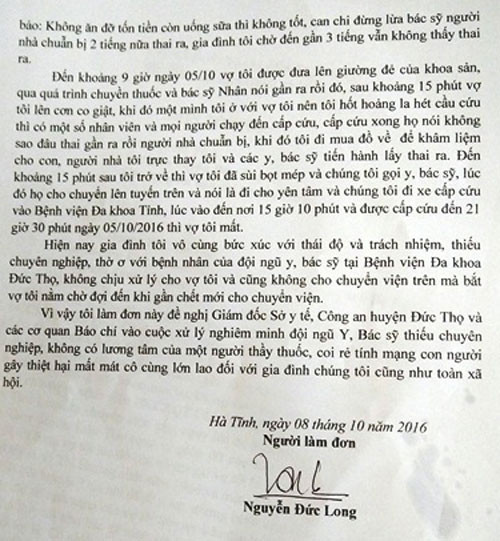 bảo: Không ăn đỡ tốn tiền còn uống sữa thì không tốt, can chi đừng lừa bác sỹ người
nhà chuẩn bị 2 tiếng nữa thai ra, gia đình tôi chờ đến gần 3 tiếng vẫn không thấy thai
ra.
Đến khoảng 9 giờ ngày 05/10 vợ tôi được đưa lên giường đẻ của khoa sản,
qua quá trình chuyền thuốc và bác sỹ Nhân nói gần ra rồi đó, sau khoảng 15 phút vợ
tôi lên cơn co giật, khi đó một mình tôi ở với vợ tôi nên tôi hốt hoảng la hét cầu cứu
thì có một số nhân viên và mọi người chạy đến cấp cứu, cấp cứu xong họ nói không
sao đâu thai gần ra rồi người nhà chuẩn bị, khi đó tôi đi mua đồ về để khâm liệm
cho con, người nhà tôi trực thay tôi và các y, bác sỹ tiến hành lấy thai ra. Đến
khoảng 15 phút sau tôi trở về thì vợ tôi đã sùi bọt mép và chúng tôi gọi y, bác sỹ, lúc
đó họ cho chuyển lên tuyến trên và nói là đi cho yên tâm và chúng tôi đi xe cấp cứu
vào Bệnh viện Đa khoa Tỉnh, lúc vào đến nơi 15 giờ 10 phút và được cấp cứu đến 21
giờ 30 phút ngày 05/10/2016 thì vợ tôi mất.
Hiện nay gia đình tôi vô cùng bức xúc với thái độ và trách nhiệm, thiếu
chuyên nghiệp, thờ ơ với bệnh nhân của đội ngũ y, bác sỹ tại Bệnh viện Đa khoa
Đức Thọ, không chịu xử lý cho vợ tôi và cũng không cho chuyển viện trên mà bắt
vợ tôi nằm chờ đợi đến khi gần chết mới cho chuyển viện.
Vì vậy tôi làm đơn này đề nghị Giám đốc Sở y tế, Công an huyện Đức Thọ và
các cơ quan Báo chí vào cuộc xử lý nghiêm minh đội ngũ Y, Bác sỹ thiếu chuyên
nghiệp, không có lương tâm của một người thầy thuốc, coi rẻ tính mạng con người
gây thiệt hại mất mát cô cùng lớn lao đối với gia đình chúng tôi cũng như toàn xã
hội.
Hà Tĩnh, ngày 08 tháng 10 năm 2016
Người làm đơn
Long
Nguyễn Đức Long